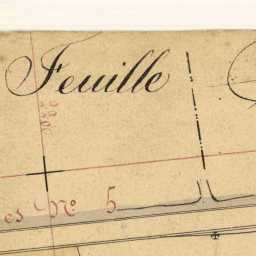 Feuille
es No. 5